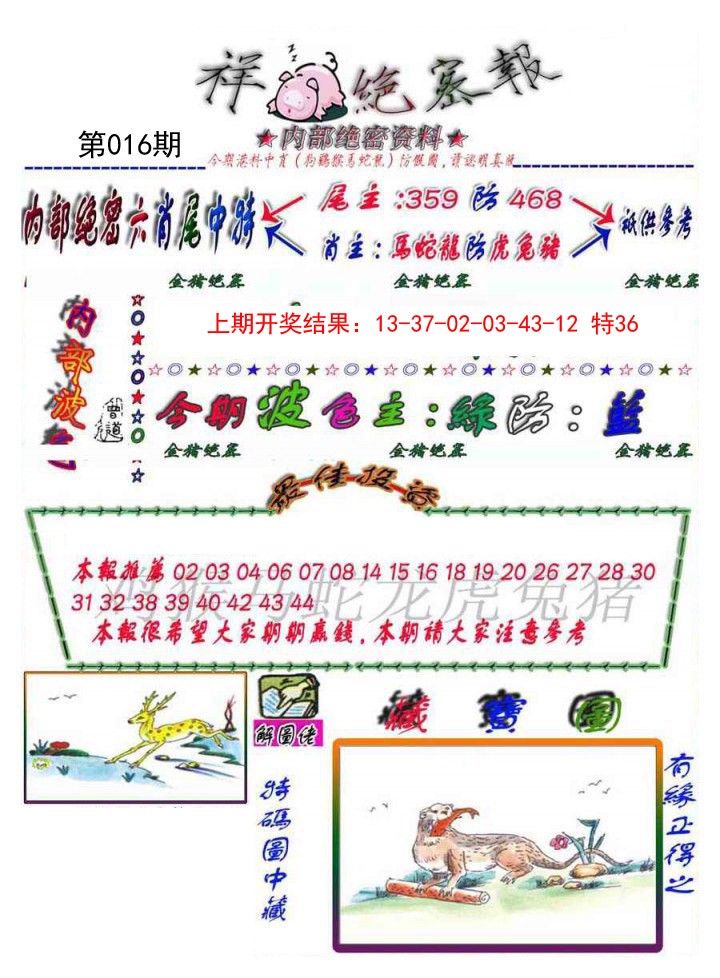 祥 絶密報
第016期
★内部绝密资料★
今期港料中肖(狗鷄猴馬蛇龍)防假圖,請認明真版
内部絶密六肖尾中特
尾主:359 防 468
肖主:馬蛇龍防虎兔豬
祗供參考
金猪絶密 金猪絶密 金猪絶密
内部波
曾道
上期开奖结果: 13-37-02-03-43-12 特36
☆◎★☆◎★☆◎★☆◎★☆◎★☆◎★☆◎★☆◎
今期波色主:綠防:藍
金猪绝密 金猪绝密 金猪绝密
最佳投資
本報推薦 02 03 04 06 07 08 14 15 16 18 19 20 26 27 28 30
31 32 38 39 40 42 43 44
猴马蛇龙虎兔猪
本報很希望大家期期贏錢,本期請大家注意參考
解圖佬
藏寶圖
特碼圖中藏
有緣正得之